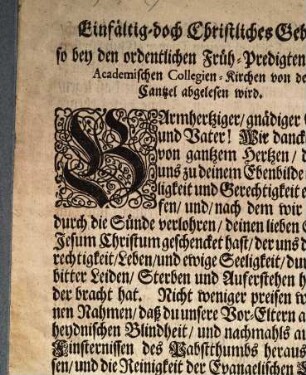 Einfältig-doch Christliches Geb
so bey den ordentlichen Früh-Predigten
Academischen Collegien-Kirchen von de
Cantzel abgelesen wird.
BArmhertziger/ gnädiger
und Vater! Wir danck
von gantzem Hertzen/ d
uns zu deinem Ebenbilde
ligkeit und Gerechtigkeit e
fen/ und/ nach dem wir
durch die Sünde verlohren/ deinen lieben S
Jesum Christum geschencket hast/ der uns d
rechtigkeit/ Leben/ und ewige Seeligkeit/ dur
bitter Leiden/ Sterben und Auferstehen h
der bracht hat. Nicht weniger preisen w
nen Nahmen/ daß du unsere Vor-Eltern a
heydnischen Blindheit/ und nachmahls au
Finsternissen des Pabstthumbs heraus
sen/ und die Reinigkeit der Evangelischen